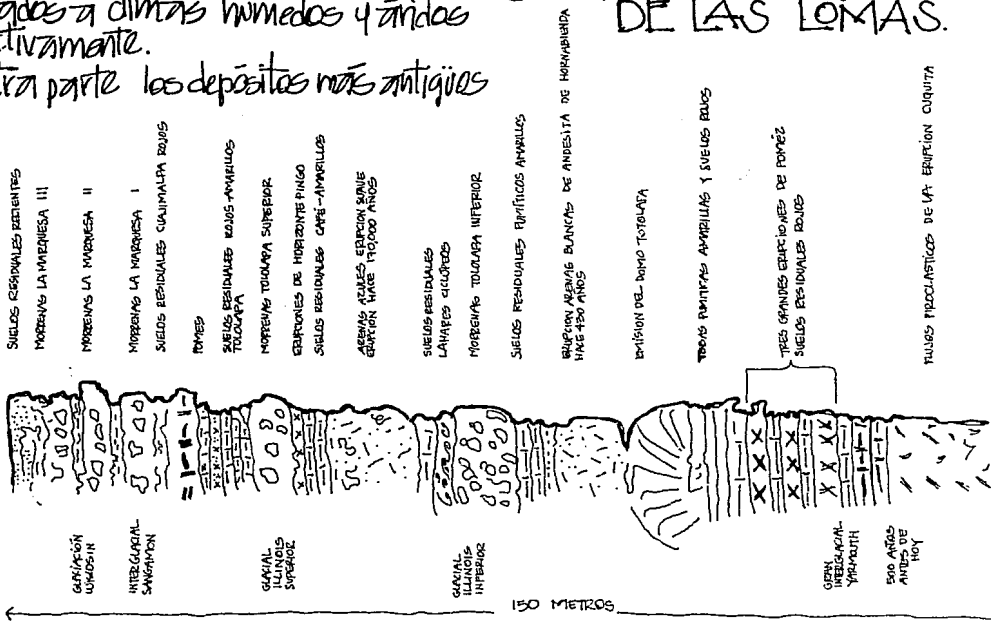 ados a climas húmedos y áridos
ctivamente.
tra parte los depósitos más antigüos
DE LAS LOMAS.
SUELOS RESIDUALES RECIENTES
MORRENAS LA MARQUESA III
MORRENAS LA MARQUESA II
MORRENAS LA MARQUESA I
SUELOS RESIDUALES CUAJIMALPA ROJOS
POMES
SUELOS RESIDUALES ROJOS-AMARILLOS
TOLOLAPA
MORRENAS TOLOLAPA SUPERIOR
ERUPCIONES DE HORIZONTE PINGO
SUELOS RESIDUALES CAFÉ-AMARILLOS
ARENAS AZULES ERUPCION SUAVE
ERUPCIÓN HACE 170,000 AÑOS
SUELOS RESIDUALES
LAHARES CICLÓPEOS
MORRENAS TOLOLAPA INFERIOR
SUELOS RESIDUALES PUMITICOS AMARILLOS
ERUPCION ARENAS BLANCAS DE ANDESITA DE HORNABLENDA
HACE 430 AÑOS
EMISION DEL DOMO TOTOLAPA
TOBAS PUMITICAS AMARILLAS Y SUELOS ROJOS
TRES GRANDES ERUPCIONES DE POMEZ
SUELOS RESIDUALES ROJOS
FLUJOS PIROCLASTICOS DE LA ERUPCION CUQUITA
GLACIACIÓN
WISCOSIN
INTERGLACIAL
SANGAMON
GLACIAL
ILLINOIS
SUPERIOR
GLACIAL
ILLINOIS
INFERIOR
GRAN
INTERGLACIAL
YARMOUTH
500 AÑOS
ANTES DE
HOY
150 METROS